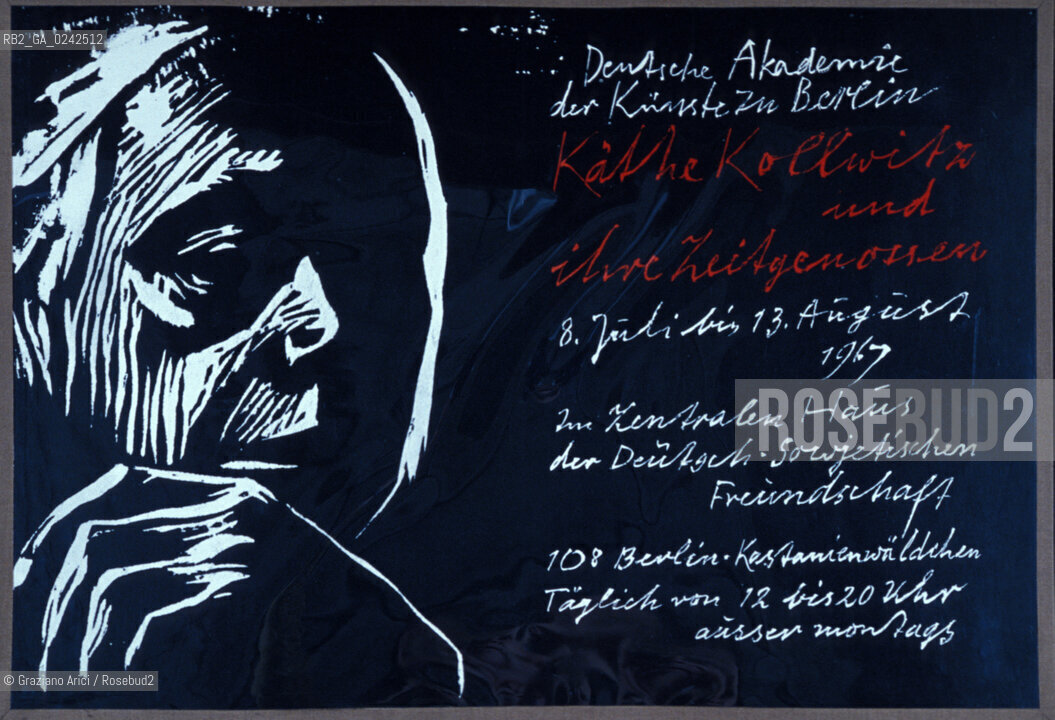 RB2_GA_0242512
Deutsche Akademie
der Künste zu Berlin
Käthe Kollwitz
und
ihre Zeitgenossen
8. Juli bis 13. August
1967
Im Zentralen Haus
der Deutsch-Sowjetischen
Freundschaft
ROSEBUD2
108 Berlin · Kastanienwäldchen
Täglich von 12 bis 20 Uhr
ausser montags
© Graziano Arici / Rosebud2